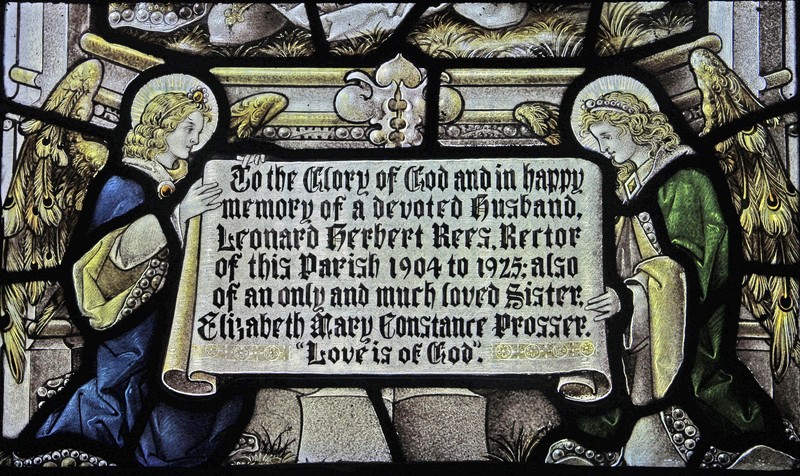 To the Glory of God and in happy
memory of a devoted Husband,
Leonard Herbert Rees, Rector
of this Parish 1904 to 1925; also
of an only and much loved Sister,
Elizabeth Mary Constance Prosser.
"Love is of God".